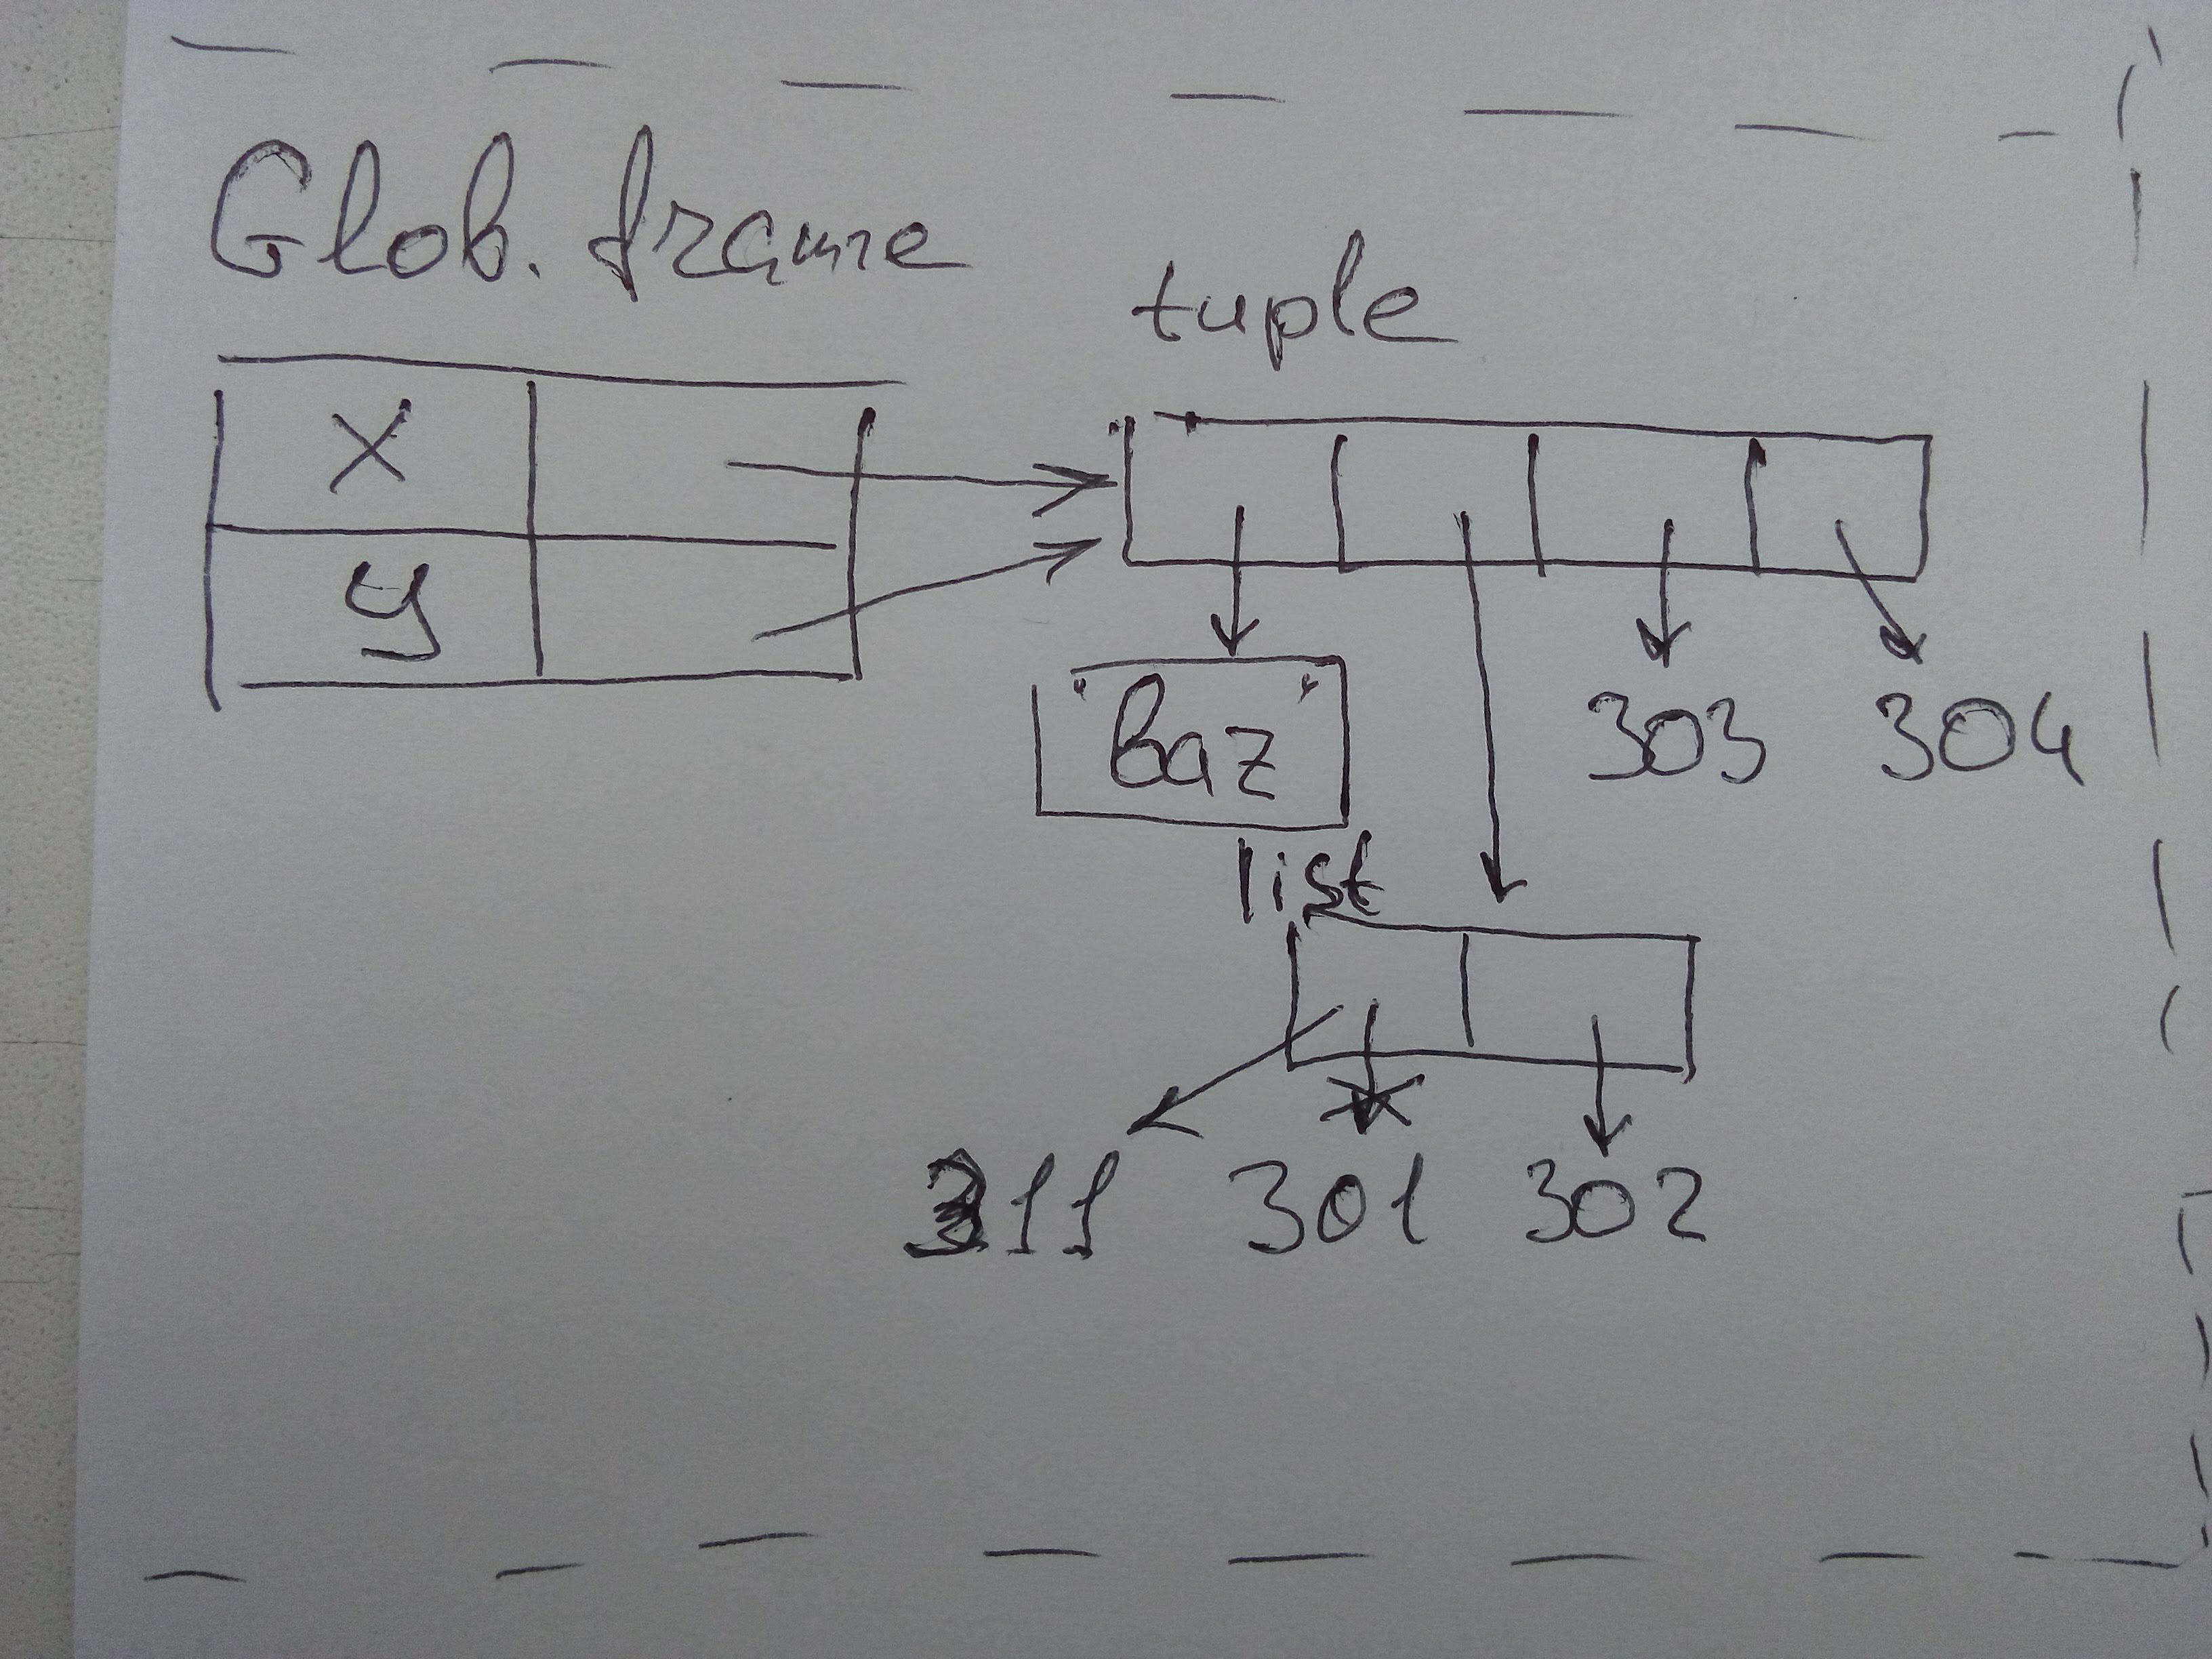 Glob. frame
tuple
x
y
'baz'
303 304
list
311 301 302